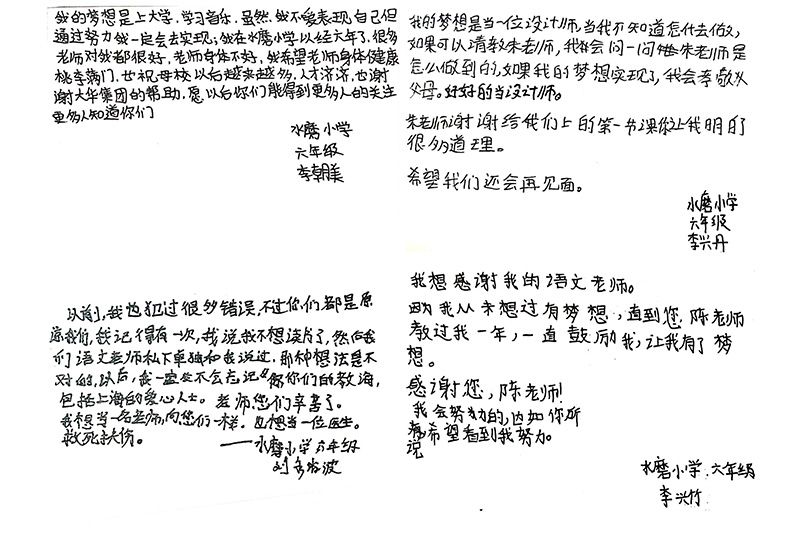 我的梦想是上大学，学习音乐，虽然，我不爱表现自己但
通过努力我一定会去实现；我在水磨小学以经六年了，很多
老师对我都很好，老师身体不好，我希望老师身体健康
桃李满门，也祝母校以后越来越多，人才济济，也谢
谢大华集团的帮助，愿以后你们能得到更多人的关注
更多人知道你们
水磨小学
六年级
李朝美
我的梦想是当一位设计师，当我不知道怎什去做，
如果可以请教朱老师，我会问一问她朱老师是
怎么做到的，如果我的梦想实现了，我会孝敬父
父母。好好的当设计师。
朱老师谢谢给我们上的第一书课你让我明的了
很多道理。
希望我们还会再见面。
水磨小学
六年级
李兴丹
以前，我也犯过很多错误，不过你们都是原
谅我们，我记得有一次，我说我不想读书了，然后我
们语文老师私下单独和我说过，那种想法是不
对的，以后，我一定不会忘记你们的教诲，
包括上海的爱心人士。老师您们辛苦了。
我想当一名老师，向您们一样。也想当一位医生。
救死扶伤。
——水磨小学六年级
刘
波
我想感谢我的语文老师。
因为我从未想过有梦想，直到您，陈老师
教过我一年，一直鼓励我，让我有了梦
想。
感谢您，陈老师！
我会努力的，因如你所
希望看到我努力。
说
水磨小学，六年级
李兴竹